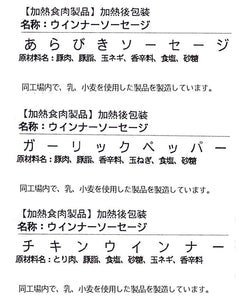 【加熱食肉製品】加熱後包装
名称：ウインナーソーセージ
あらびきソーセージ
原材料名：豚肉、豚脂、玉ネギ、香辛料、食塩、砂糖
同工場内で、乳、小麦を使用した製品を製造しています。
【加熱食肉製品】加熱後包装
名称：ウインナーソーセージ
ガーリックペッパー
原材料名：豚肉、豚脂、香辛料、玉ねぎ、食塩、砂糖
同工場内で、乳、小麦を使用した製品を製造しています。
【加熱食肉製品】加熱後包装
名称：ウインナーソーセージ
チキンウインナー
原材料名：とり肉、豚脂、食塩、砂糖、玉ネギ、香辛料
同工場内で、乳、小麦を使用した製品を製造しています。